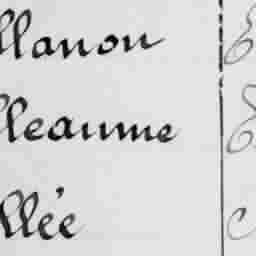 llanon
lleaume
llée